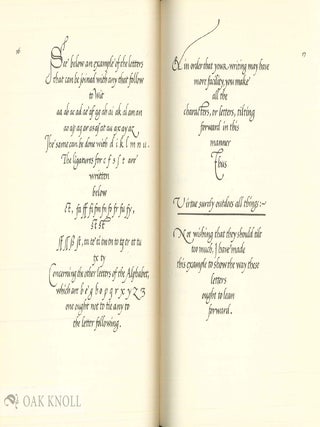 16
See below an example of the letters
that can be joined with any that follow
to Wit
aa ab ac ad ae af ag ah ai ak al am an
ao ap aq ar as af at au ax ay az
The same can be done with d i k l m n u.
The ligatures for c f s ſ t are
written
below
ct, fa ff fi fm fn fo fr fu fy,
st st
ſſ ſſ ß ſt, ta te ti tm tn to tq tr tt tu
tx ty
Concerning the other letters of the Alphabet,
which are b e g h o p q r x y z 3
one ought not to tie any to
the letter following.
17
And in order that your writing may have
more facility, you make
all the
characters, or letters, tilting
forward in this
manner
Thus
Virtue surely outdoes all things:~
Not wishing that they should tilt
too much, I have made
this example to show the way these
letters
ought to lean
forward.
OAK KNOLL